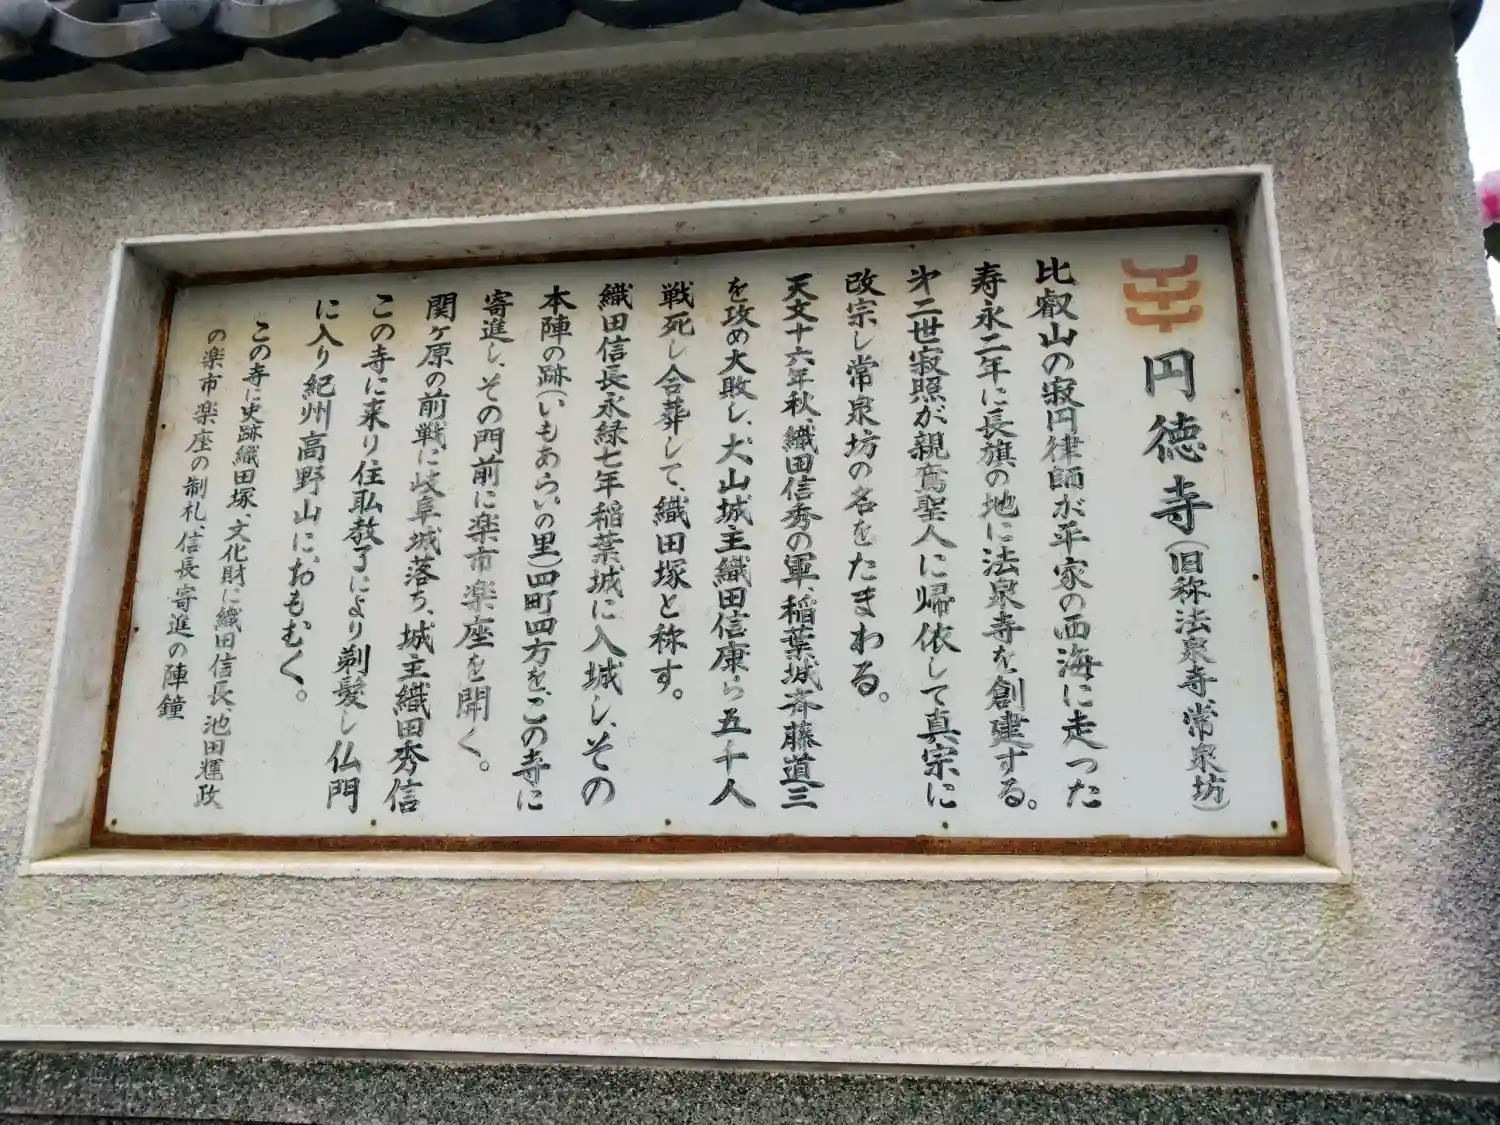 円徳寺(旧称法泉寺、常泉坊)
比叡山の寂円律師が平家の西海に走った
寿永二年に長旗の地に法泉寺を創建する。
㐧二世寂照が親鸞聖人に帰依して真宗に
改宗し常泉坊の名をたまわる。
天文十六年秋、織田信秀の軍、稲葉城斉藤道三
を攻め大敗し、犬山城主織田信康ら五千人
戦死し合葬して、織田塚と称す。
織田信長永緑七年稲葉城に入城し、その
本陣の跡(いもあらいの里)四町四方を、この寺に
寄進し、その門前に楽市楽座を開く。
関ヶ原の前戦に岐阜城落ち、城主織田秀信
この寺に来り住職教了により剃髪し仏門
に入り紀州高野山におもむく。
この寺に史跡織田塚、文化財に織田信長、池田輝政
の楽市楽座の制札、信長寄進の陣鐘